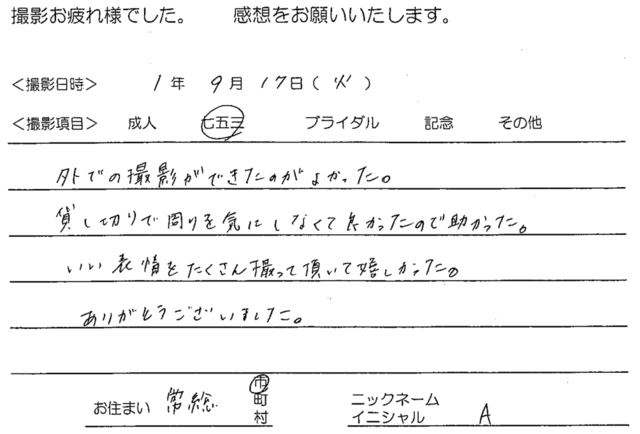 撮影お疲れ様でした。 感想をお願いいたします。
＜撮影日時＞ 1年 9月 17日(火)
＜撮影項目＞ 成人 七五三 ブライダル 記念 その他
外での撮影ができたのがよかった。
貸し切りで周りを気にしなくて良かったので助かった。
いい表情をたくさん撮って頂いて嬉しかった。
ありがとうございました。
お住まい 常総 市 町 村
ニックネーム
イニシャル A